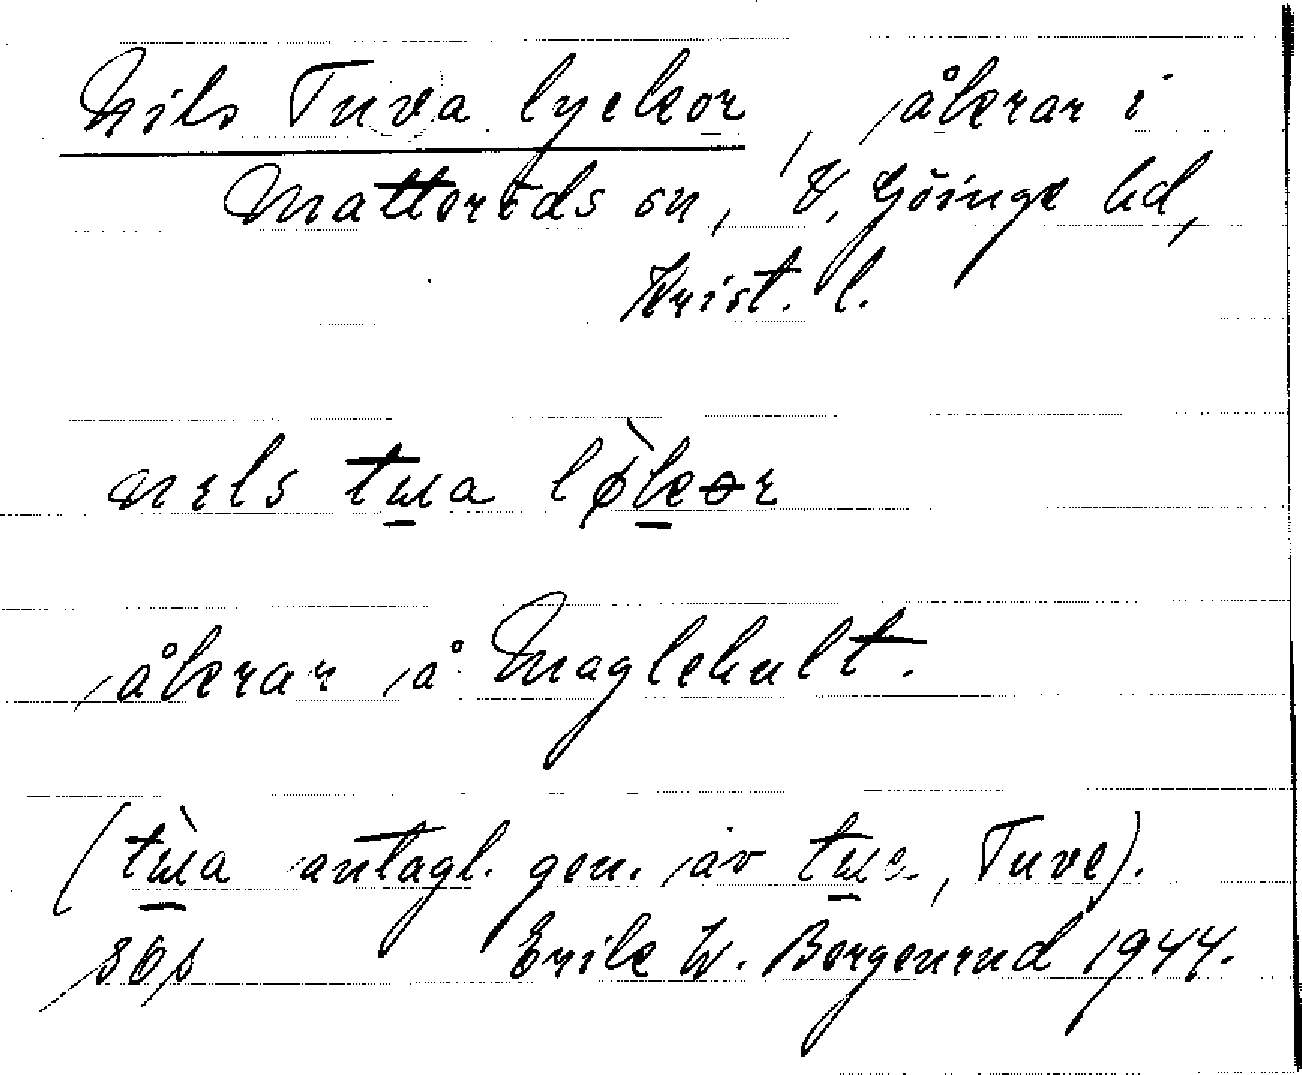 Nils Tuva lyckor, åkrar i
Matteröds sn, V. Göinge hd,
Krist. l.
nels tua løkər
åkrar å Maglehult.
(tùa antagl. gen. av tue, Tuve).
Erik W. Borgenrud 1944.